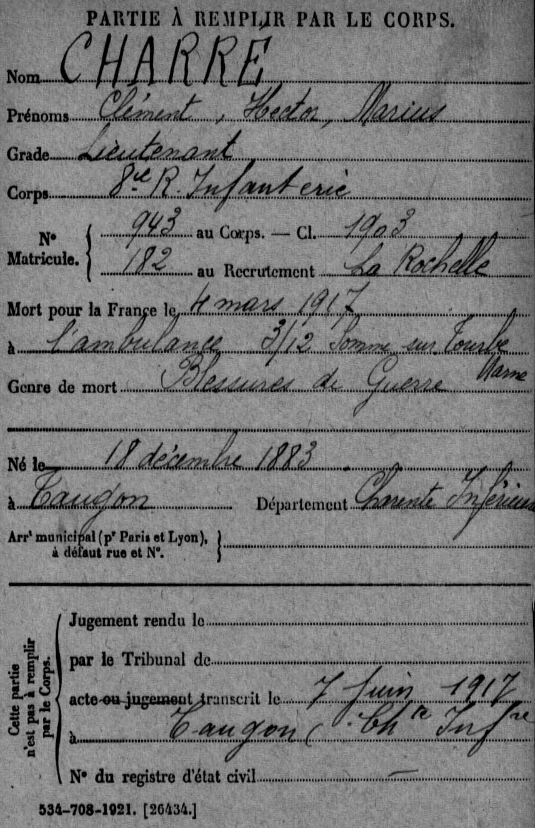 PARTIE À REMPLIR PAR LE CORPS.
Nom CHARRÉ
Prénoms Clément, Hector, Marius
Grade Lieutenant
Corps 8e R. Infanterie
N° Matricule. { 943 au Corps. — Cl. 1903
182 au Recrutement La Rochelle
Mort pour la France le 4 mars 1917
à l'ambulance 3/12 Somme sur Tourbe
Marne
Genre de mort Blessures de Guerre
Né le 18 décembre 1883
à Taugon Département Charente Inférieure
Arrt municipal (pr Paris et Lyon), }
à défaut rue et N°.
Cette partie n'est pas à remplir par le Corps.
Jugement rendu le
par le Tribunal de
acte ou jugement transcrit le 7 Juin 1917
à Taugon (Chte Infre
N° du registre d'état civil —
534-708-1921. [26434.]